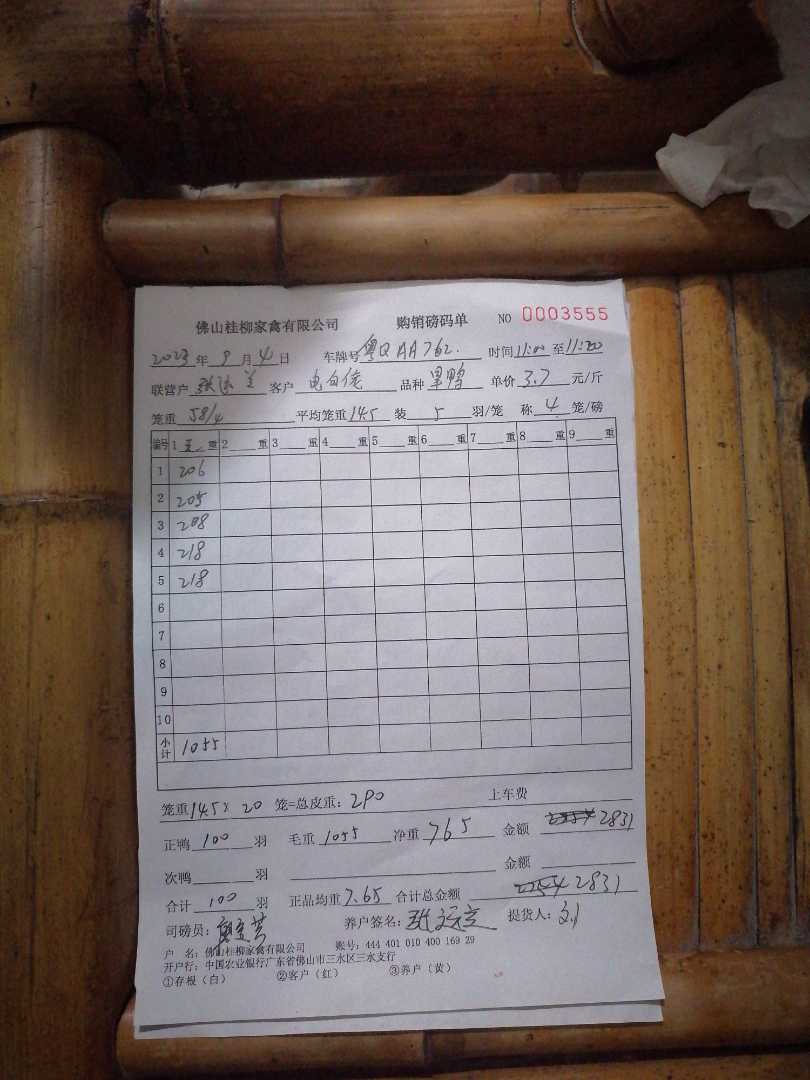 佛山桂柳家禽有限公司 购销磅码单 NO 0003555
2023年9月4日 车牌号 粤QAA762. 时间11:00至11:20
联营户 客户 电白佬 品种 黑鸭 单价3.7元/斤
笼重 58/4 平均笼重14.5 装 5 羽/笼 称 4 笼/磅
编号 1 重 2 重 3 重 4 重 5 重 6 重 7 重 8 重 9 重
1 206
2 205
3 208
4 218
5 218
6
7
8
9
10
小计 1055
笼重14.5×20笼=总皮重:290 上车费
正鸭100羽 毛重1055 净重765 金额 2831
次鸭 羽 金额
合计100羽 正品均重7.65 合计总金额 2831
司磅员: 养户签名: 提货人:
户 名:佛山桂柳家禽有限公司 账号:444 401 010 400 169 29
开户行:中国农业银行广东省佛山市三水区三水支行
①存根(白) ②客户(红) ③养户(黄)